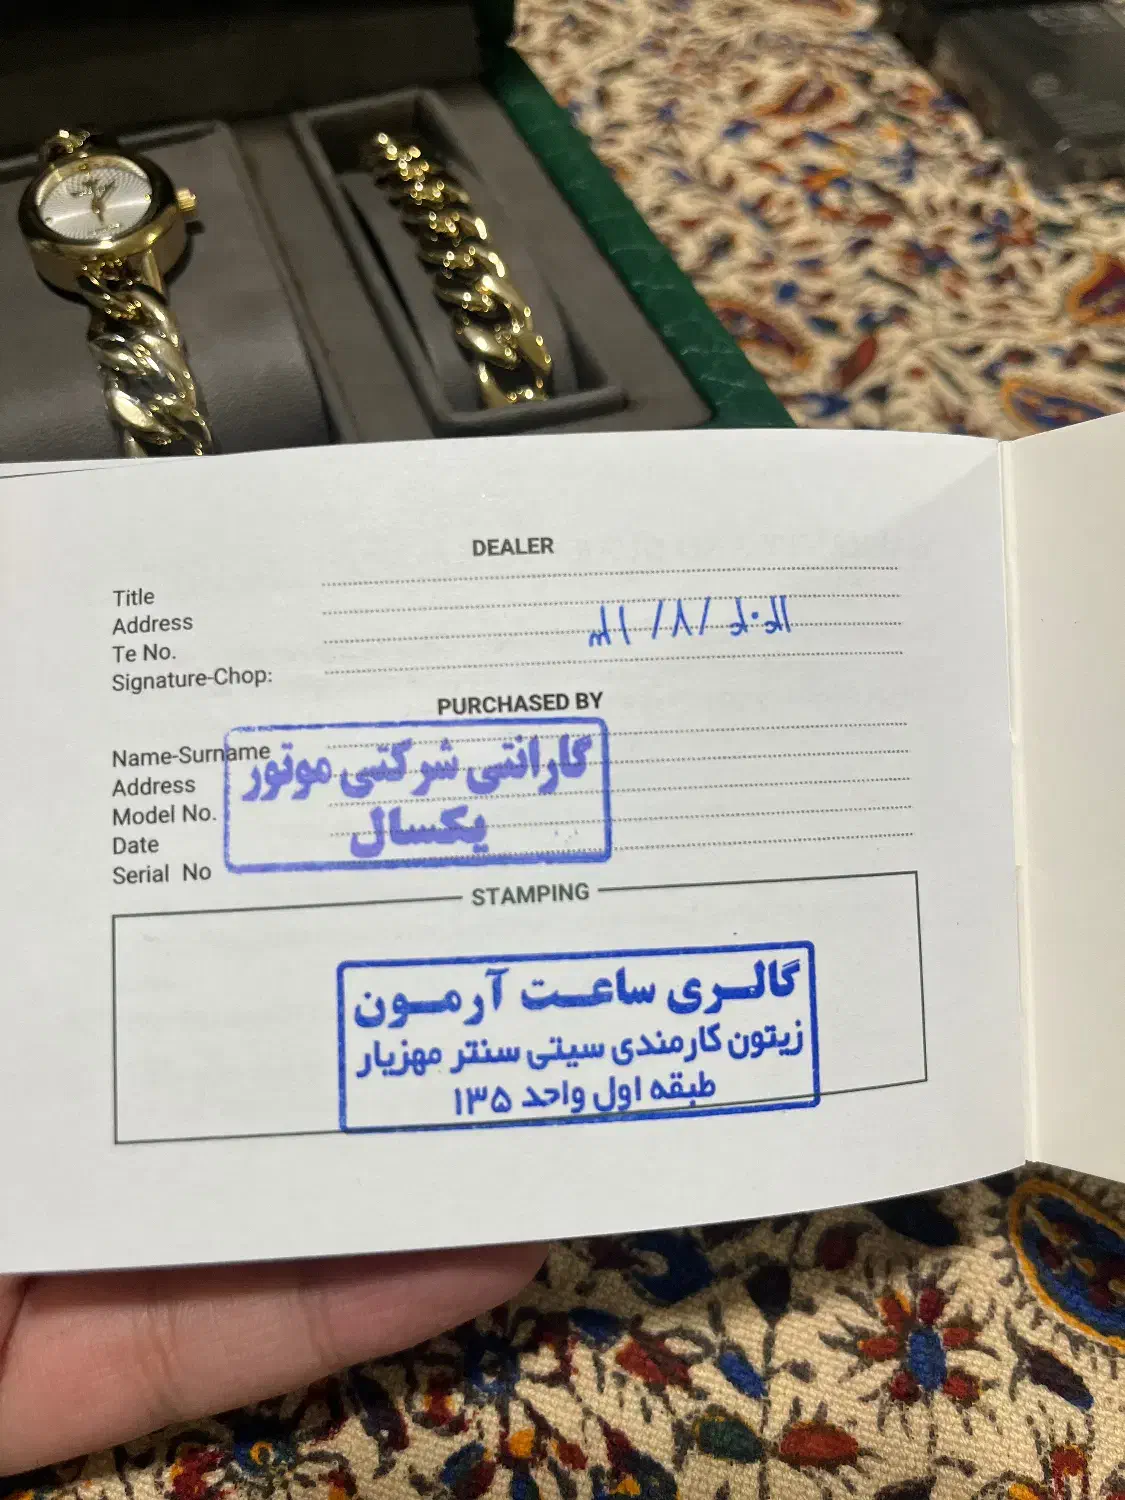 DEALER
Title
Address
Te No.
Signature-Chop:
PURCHASED BY
Name-Surname
Address
Model No.
Date
Serial No
گارانتی شرکتی موتور
یکسال
STAMPING
گالری ساعت آرمون
زیتون کارمندی سیتی سنتر مهزیار
طبقه اول واحد ۱۳۵